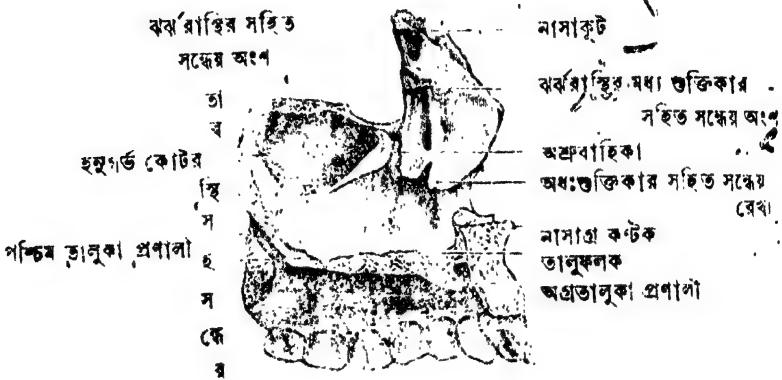 ঝর্ঝরাস্থির সহিত
সন্ধেয় অংশ
তা
হনুগর্ভ কোটর
স্থি
স
পশ্চিম তালুকা প্রণালী
হ
স
ন্ধে
য়
নাসাকূট
ঝর্ঝরাস্থির মধ্য শুক্তিকার
সহিত সন্ধেয় অংশ
অশ্রুবাহিকা
অধঃশুক্তিকার সহিত সন্ধেয়
রেখা
নাসাগ্র কণ্টক
তালুফলক
অগ্রতালুকা প্রণালী